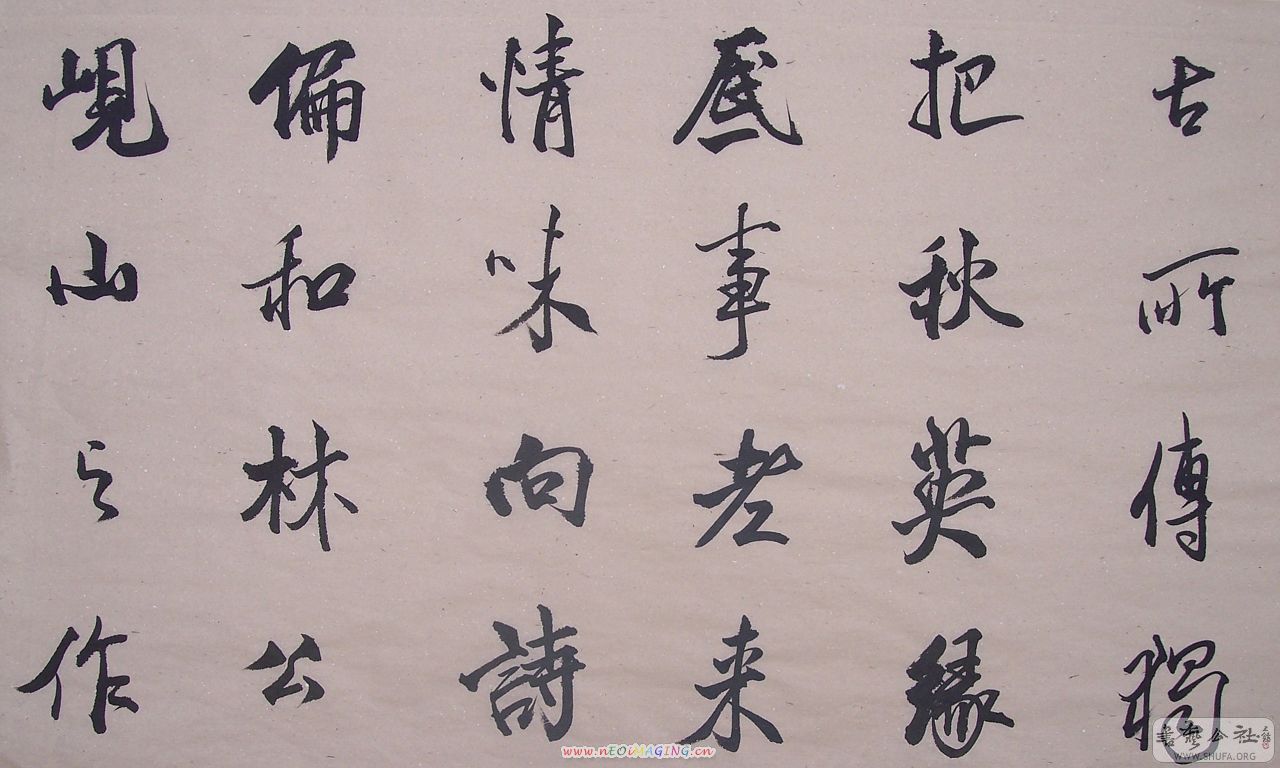 古所傳獨
把秋英緣
底事老來
情味向詩
偏和林公
峴山之作
www.nEOiMAGiNG.cn
書藝公社
WWW.SHUFA.ORG